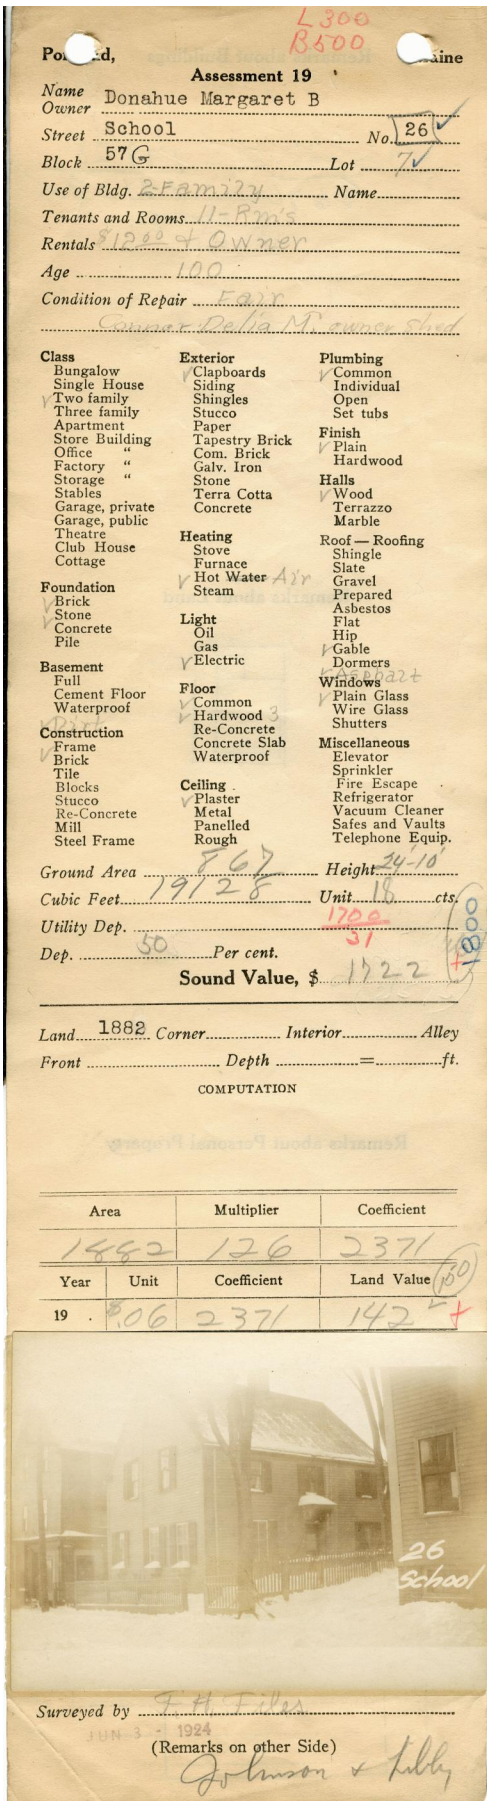 L300
B500
Assessment 19
Name
Owner Donahue Margaret B
Street School No. 26
Block 57 G Lot 7
Use of Bldg. 2-Family Name
Tenants and Rooms 11-Rm's
Rentals $12.00 & Owner
Age 100
Condition of Repair Fair
Connor Delia M. owner shed
Class
Bungalow
Single House
Two family
Three family
Apartment
Store Building
Office "
Factory "
Storage "
Stables
Garage, private
Garage, public
Theatre
Club House
Cottage
Foundation
Brick
Stone
Concrete
Pile
Basement
Full
Cement Floor
Waterproof
Dirt
Construction
Frame
Brick
Tile
Blocks
Stucco
Re-Concrete
Mill
Steel Frame
Exterior
Clapboards
Siding
Shingles
Stucco
Paper
Tapestry Brick
Com. Brick
Galv. Iron
Stone
Terra Cotta
Concrete
Heating
Stove
Furnace
Hot Water Air
Steam
Light
Oil
Gas
Electric
Floor
Common
Hardwood 3
Re-Concrete
Concrete Slab
Waterproof
Ceiling
Plaster
Metal
Panelled
Rough
Plumbing
Common
Individual
Open
Set tubs
Finish
Plain
Hardwood
Halls
Wood
Terrazzo
Marble
Roof — Roofing
Shingle
Slate
Gravel
Prepared
Asbestos
Flat
Hip
Gable
Dormers
Asphalt
Windows
Plain Glass
Wire Glass
Shutters
Miscellaneous
Elevator
Sprinkler
Fire Escape
Refrigerator
Vacuum Cleaner
Safes and Vaults
Telephone Equip.
Ground Area 867 Height 24'-10'
Cubic Feet 19128 Unit 18 cts.
Utility Dep. 1700
31
1800
Dep. 50 Per cent.
Sound Value, $ 1722
Land 1882 Corner Interior Alley
Front Depth = ft.
COMPUTATION
Area Multiplier Coefficient
1882 126 2371
Year Unit Coefficient Land Value 150
19 . $.06 2371 142
26
School
Surveyed by F. H. Files
JUN 3 - 1924
(Remarks on other Side)
Johnson & Libby